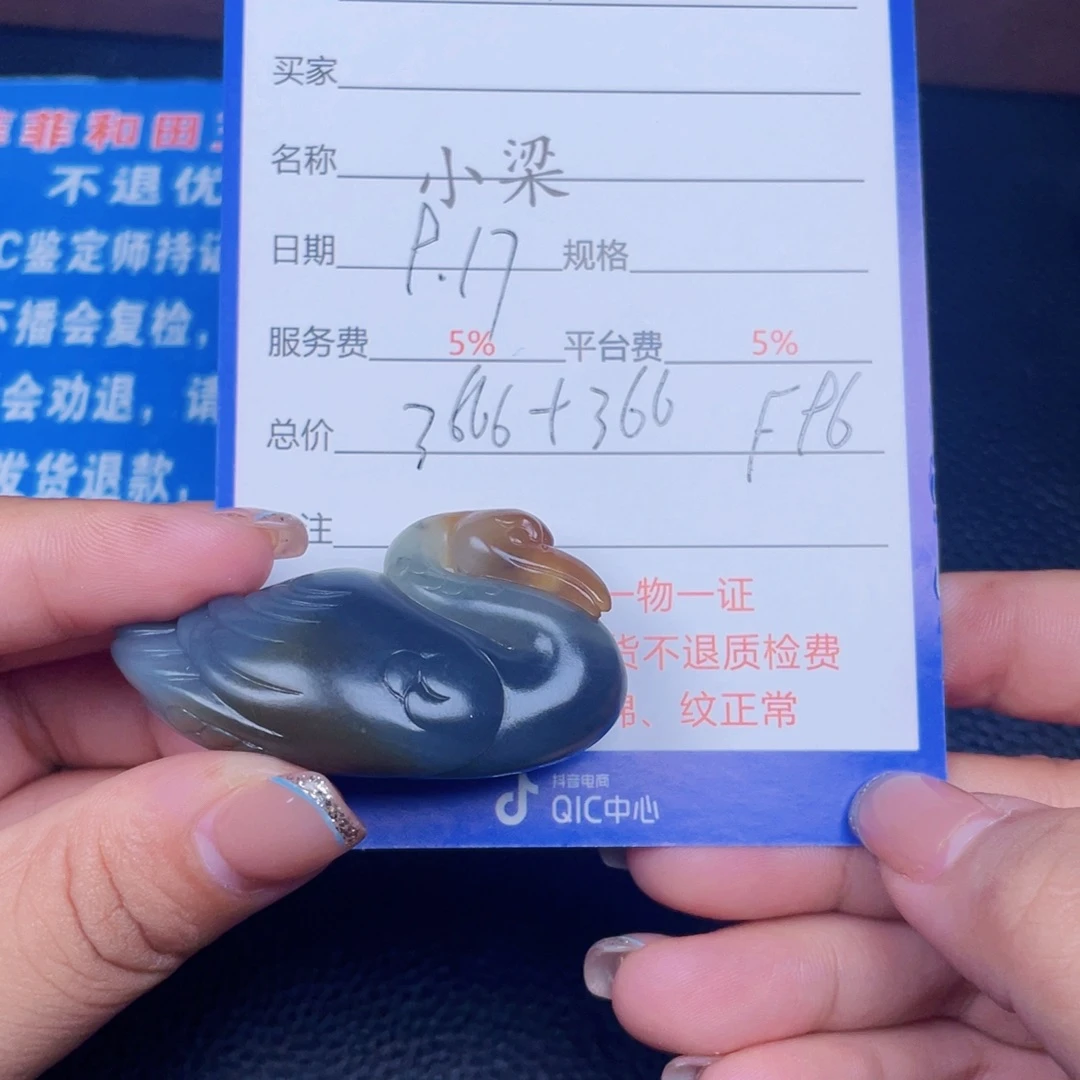 菲和田
不退优
C鉴定师持证
不播会复检，
会劝退，请
发货退款，
买家
名称 小梁
日期 P.17 规格
服务费 5% 平台费 5%
总价 3666+366 FP6
注
一物一证
货不退质检费
棉、纹正常
抖音电商
QIC中心